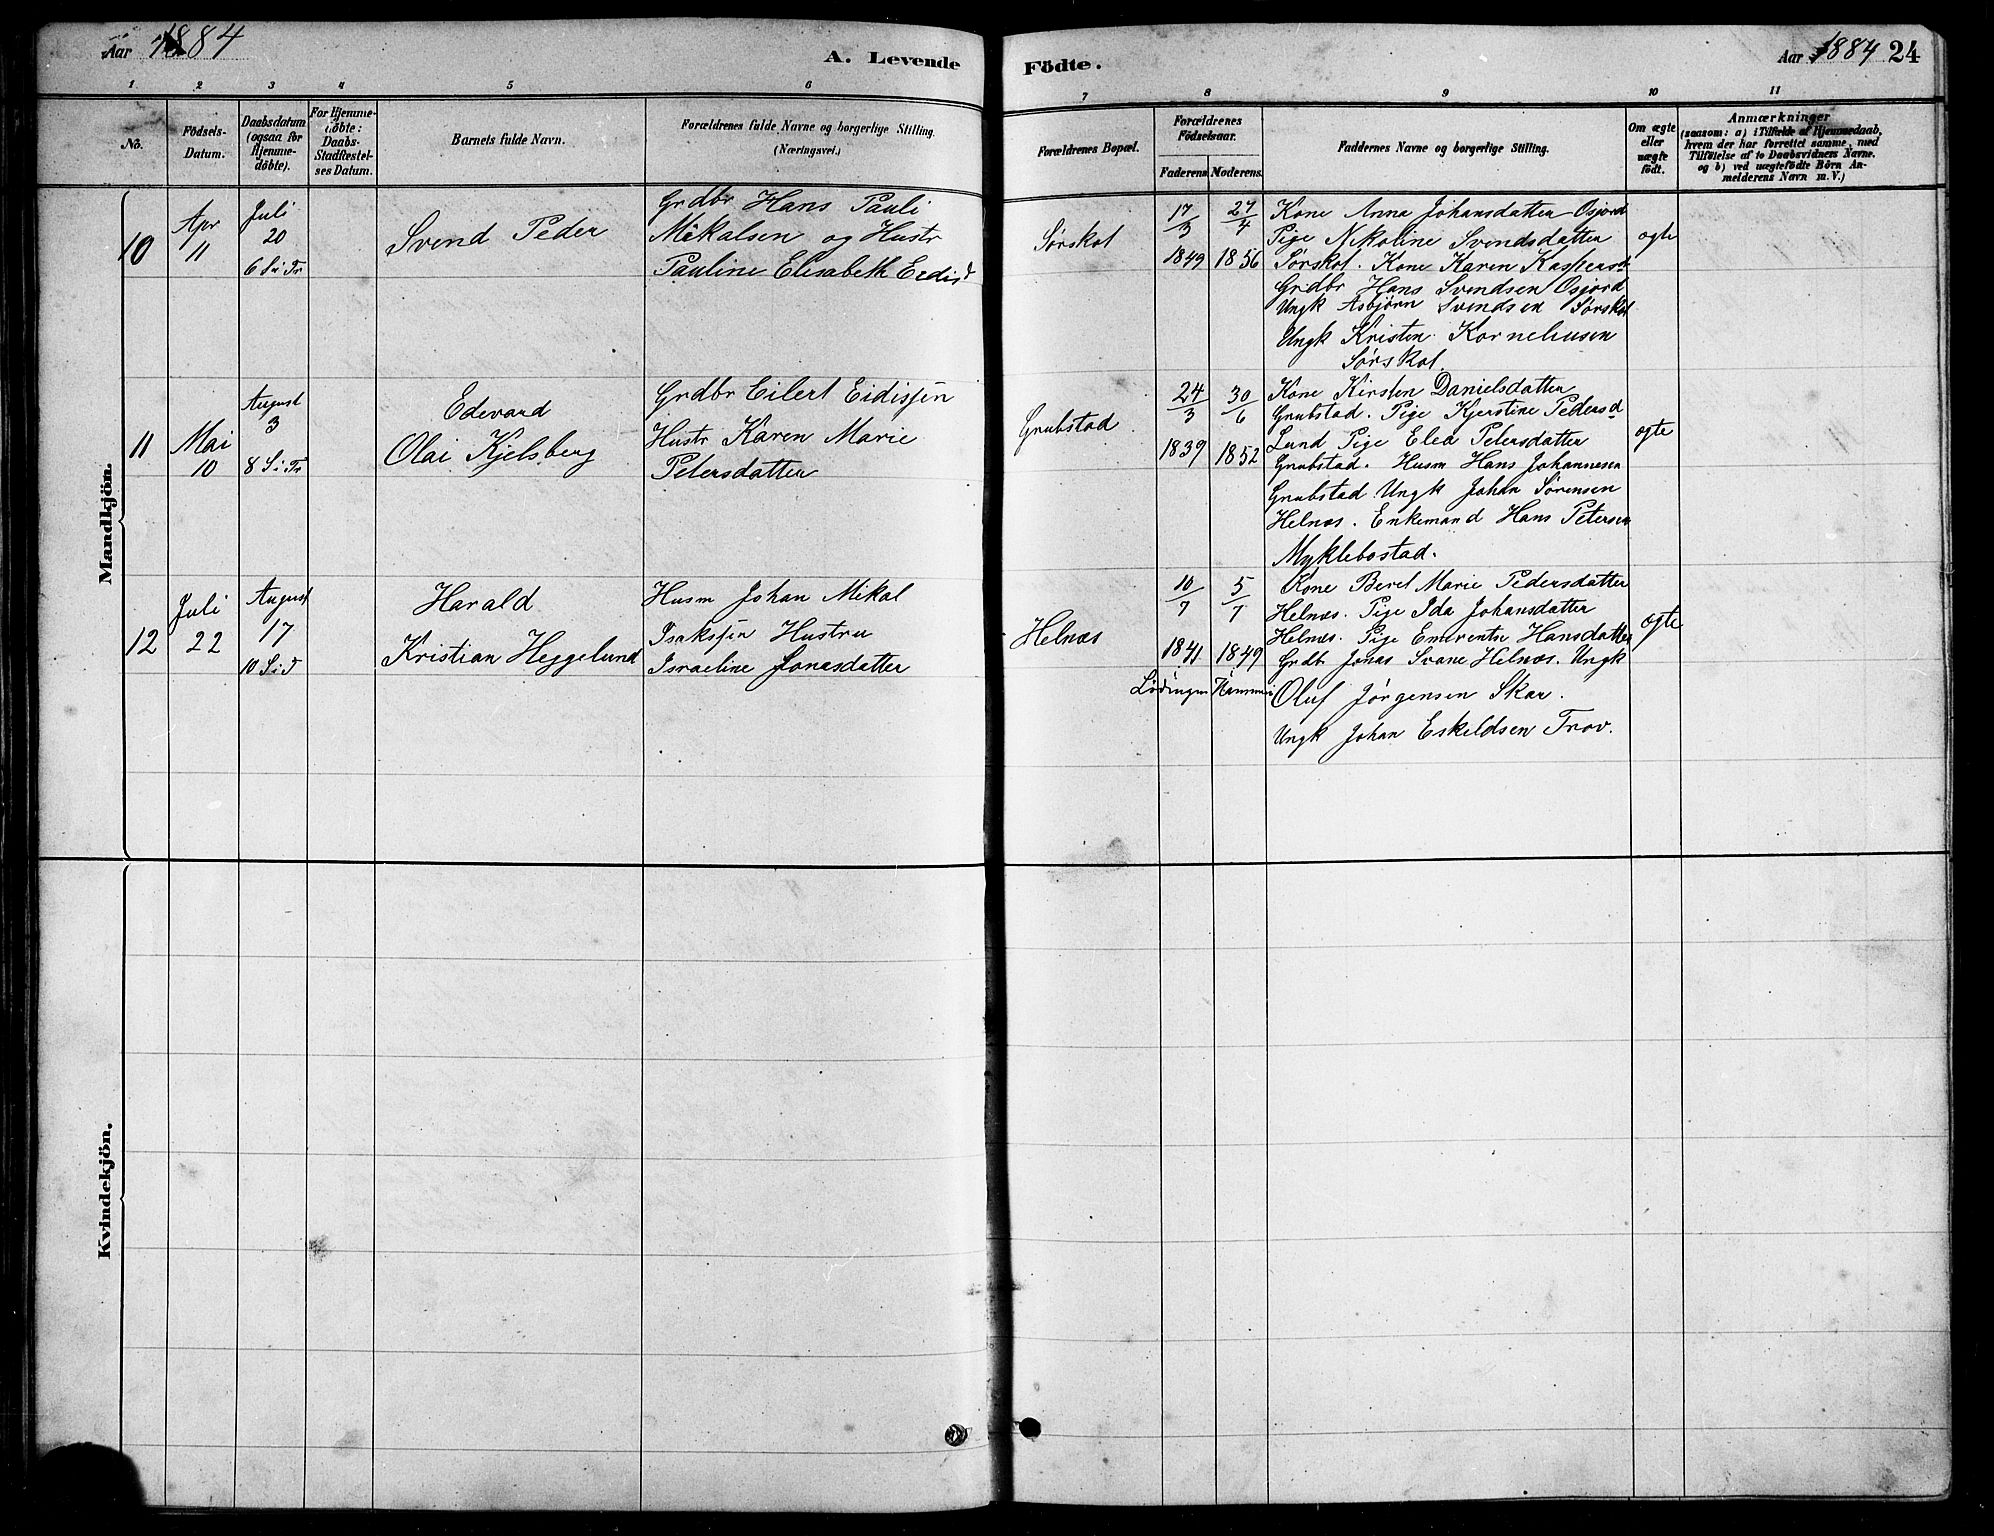 Aar 1884
A. Levende
1 2 3 4 5 6
No.
Födsels-
Datum.
Daabsdatum
(ogsaa for
Hjemme-
döbte).
For Hjemme-
döbte:
Daabs-
Stadfæstel-
ses Datum.
Barnets fulde Navn.
Forældrenes fulde Navne og borgerlige Stilling.
(Næringsvei.)
Mandkjön.
10
Apr
11
Juli
20
6 S i Tr
Svend Peder
Grdbr Hans Pauli
Mikalsen og Hustr
Pauline Elisabeth Eidisd
11
Mai
10
August
3
8 S i Tr
Edevard
Olai Kjelsberg
Grdbr Eilert Eidissen
Hustr Karen Marie
Petersdatter
12
Juli
22
August
17
10 S i d
Harald
Kristian Heggelund
Husm Johan Mikal
Isakssen Hustru
Israeline Jonasdatter
Kvindekjön.
Födte.
Aar 1884 24
7 8 9 10 11
Forældrenes Bopæl.
Forældrenes
Födselsaar.
Faderens Moderens
Faddernes Navne og borgerlige Stilling.
Om ægte
eller
uægte
födt.
Anmærkninger
(saasom: a) i Tilfælde af Hjemmedaab,
hvem der har forrettet samme, med
Tilföielse af to Daabsvidners Navne.
og b) ved uægtefödte Börn An-
melderens Navn m. V.)
Sørskot
17/3
1849
27/4
1856
Kone Anna Johansdatter Osjord
Pige Nikoline Svendsdatter
Sørskot. Kone Karen Kaspersd
Grdbr Hans Svendsen Osjord
Ungk Asbjørn Svendsen Sørskot
Ungk Kristen Korneliusen
Sørskot.
ogte
Grubstad
24/3
1839
30/6
1852
Kone Kirsten Danielsdatter
Grubstad. Pige Kjerstine Pedersd
Lund Pige Elea Petersdatter
Grubstad. Husm Hans Johannesen
Grubstad Ungk Johan Sørensen
Helnæs. Enkemand Hans Petersen
Myklebostad.
ogte
Helnæs
10/7
1841
Lødingen
5/7
1849
Kone Beret Marie Pedersdatter
Helnæs. Pige Ida Johansdatter
Helnæs. Pige Emerentse Hansdatter
Grdb Jonas Svane Helnæs. Ungk
Oluf Jørgensen Skar.
Ungk Johan Eskildsen Trov.
ogte